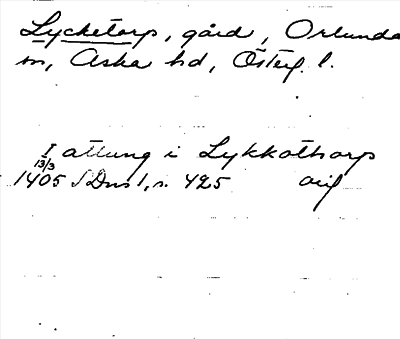 Lycketorp, gård, Orlunda
sn, Aska hd, Österg. l.
I attung i Lykkothorp
13/3
1405 SDns 1, s. 425 orig